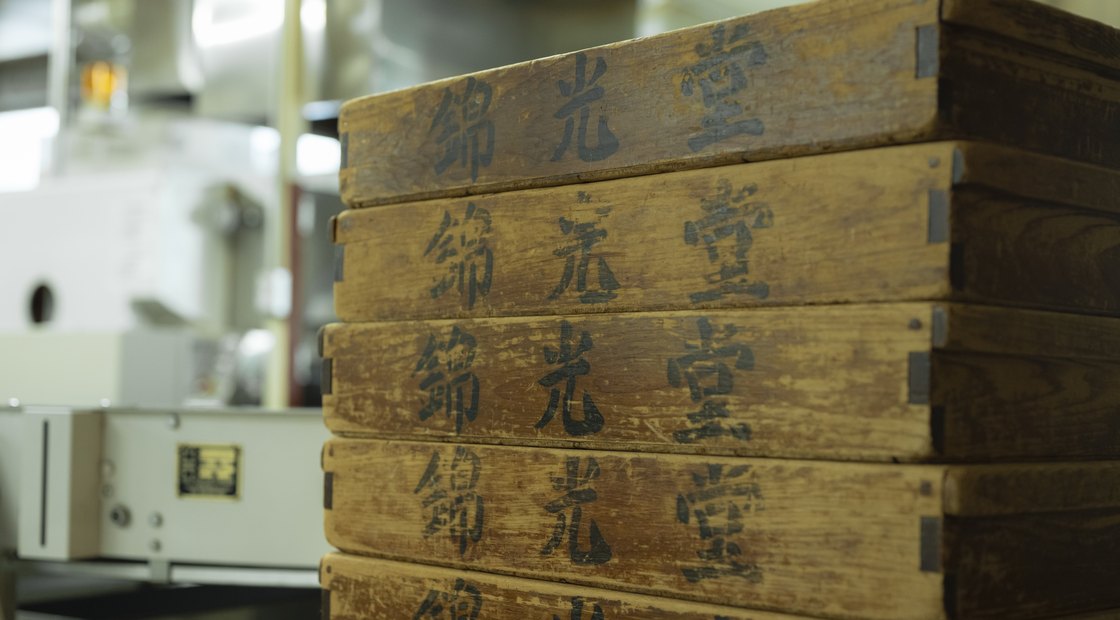 錦光堂
錦光堂
錦光堂
錦光堂
錦光